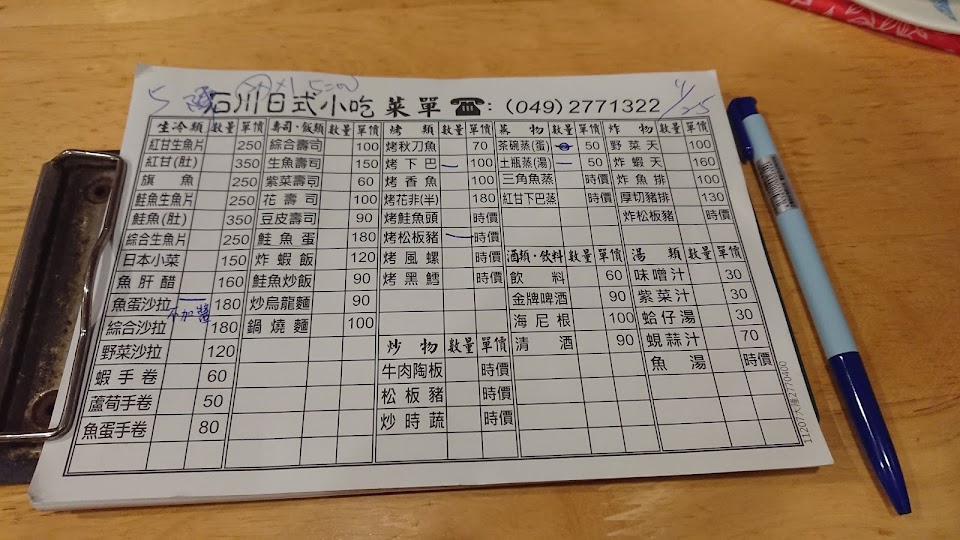 5 石川日式小吃 菜單 ☎:(049)2771322
生冷類 數量 單價 壽司·飯類 數量 單價 烤 類 數量 單價 蒸 物 數量 單價 炸 物 數量 單價
紅甘生魚片 250 綜合壽司 100 烤秋刀魚 70 茶碗蒸(蛋) 50 野菜天 100
紅甘(肚) 350 生魚壽司 150 烤下巴 100 土瓶蒸(湯) 50 炸蝦天 160
旗魚 250 紫菜壽司 60 烤香魚 100 三角魚蒸 時價 炸魚排 100
鮭魚生魚片 250 花壽司 100 烤花枝(半) 180 紅甘下巴蒸 時價 厚切豬排 130
鮭魚(肚) 350 豆皮壽司 90 烤鮭魚頭 時價 炸松板豬 時價
綜合生魚片 250 鮭魚蛋 180 烤松板豬 時價 酒類·飲料 數量 單價 湯 類 數量 單價
日本小菜 150 炸蝦飯 120 烤風螺 時價 飲料 60 味噌汁 30
魚肝醋 160 鮭魚炒飯 90 烤黑鱈 時價 金牌啤酒 90 紫菜汁 30
魚蛋沙拉 不加醬 180 炒烏龍麵 90 海尼根 100 蛤仔湯 30
綜合沙拉 180 鍋燒麵 100 炒 物 數量 單價 清酒 90 蜆蒜汁 70
野菜沙拉 120 牛肉陶板 時價 魚湯 時價
蝦手卷 60 松板豬 時價
蘆筍手卷 50 炒時蔬 時價
魚蛋手卷 80